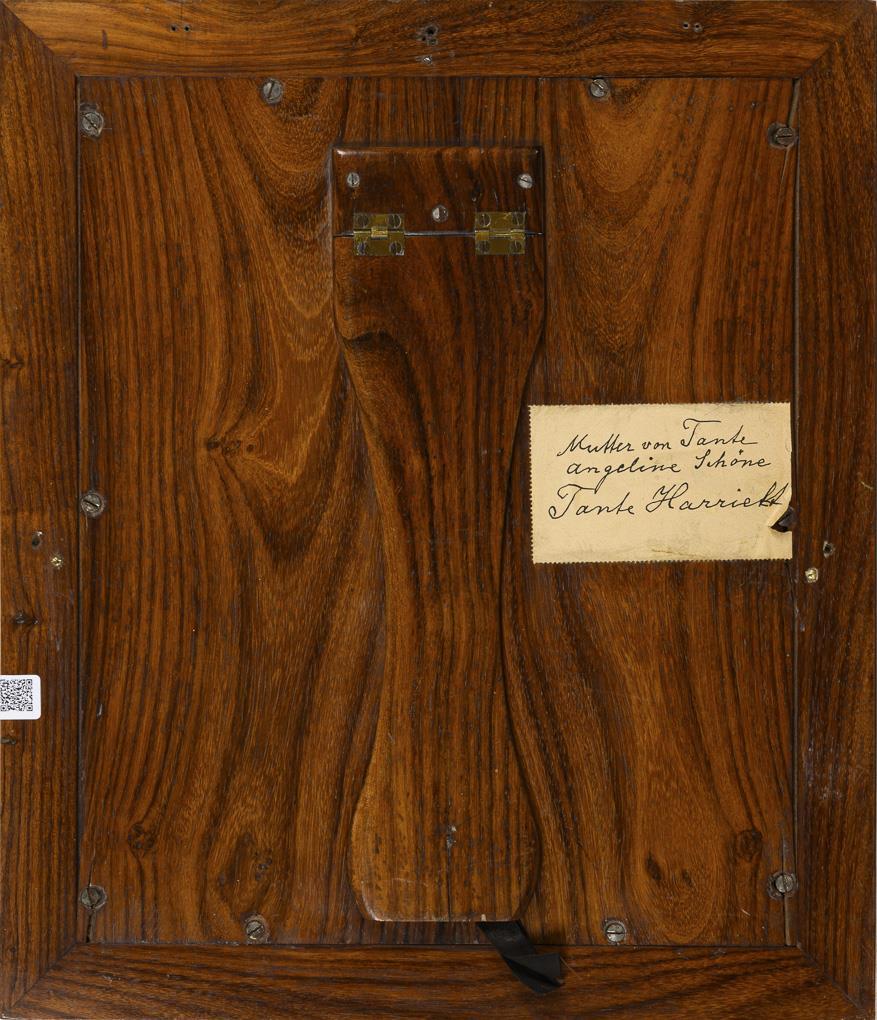 Mutter von Tante
angeline Schöne
Tante Harriett